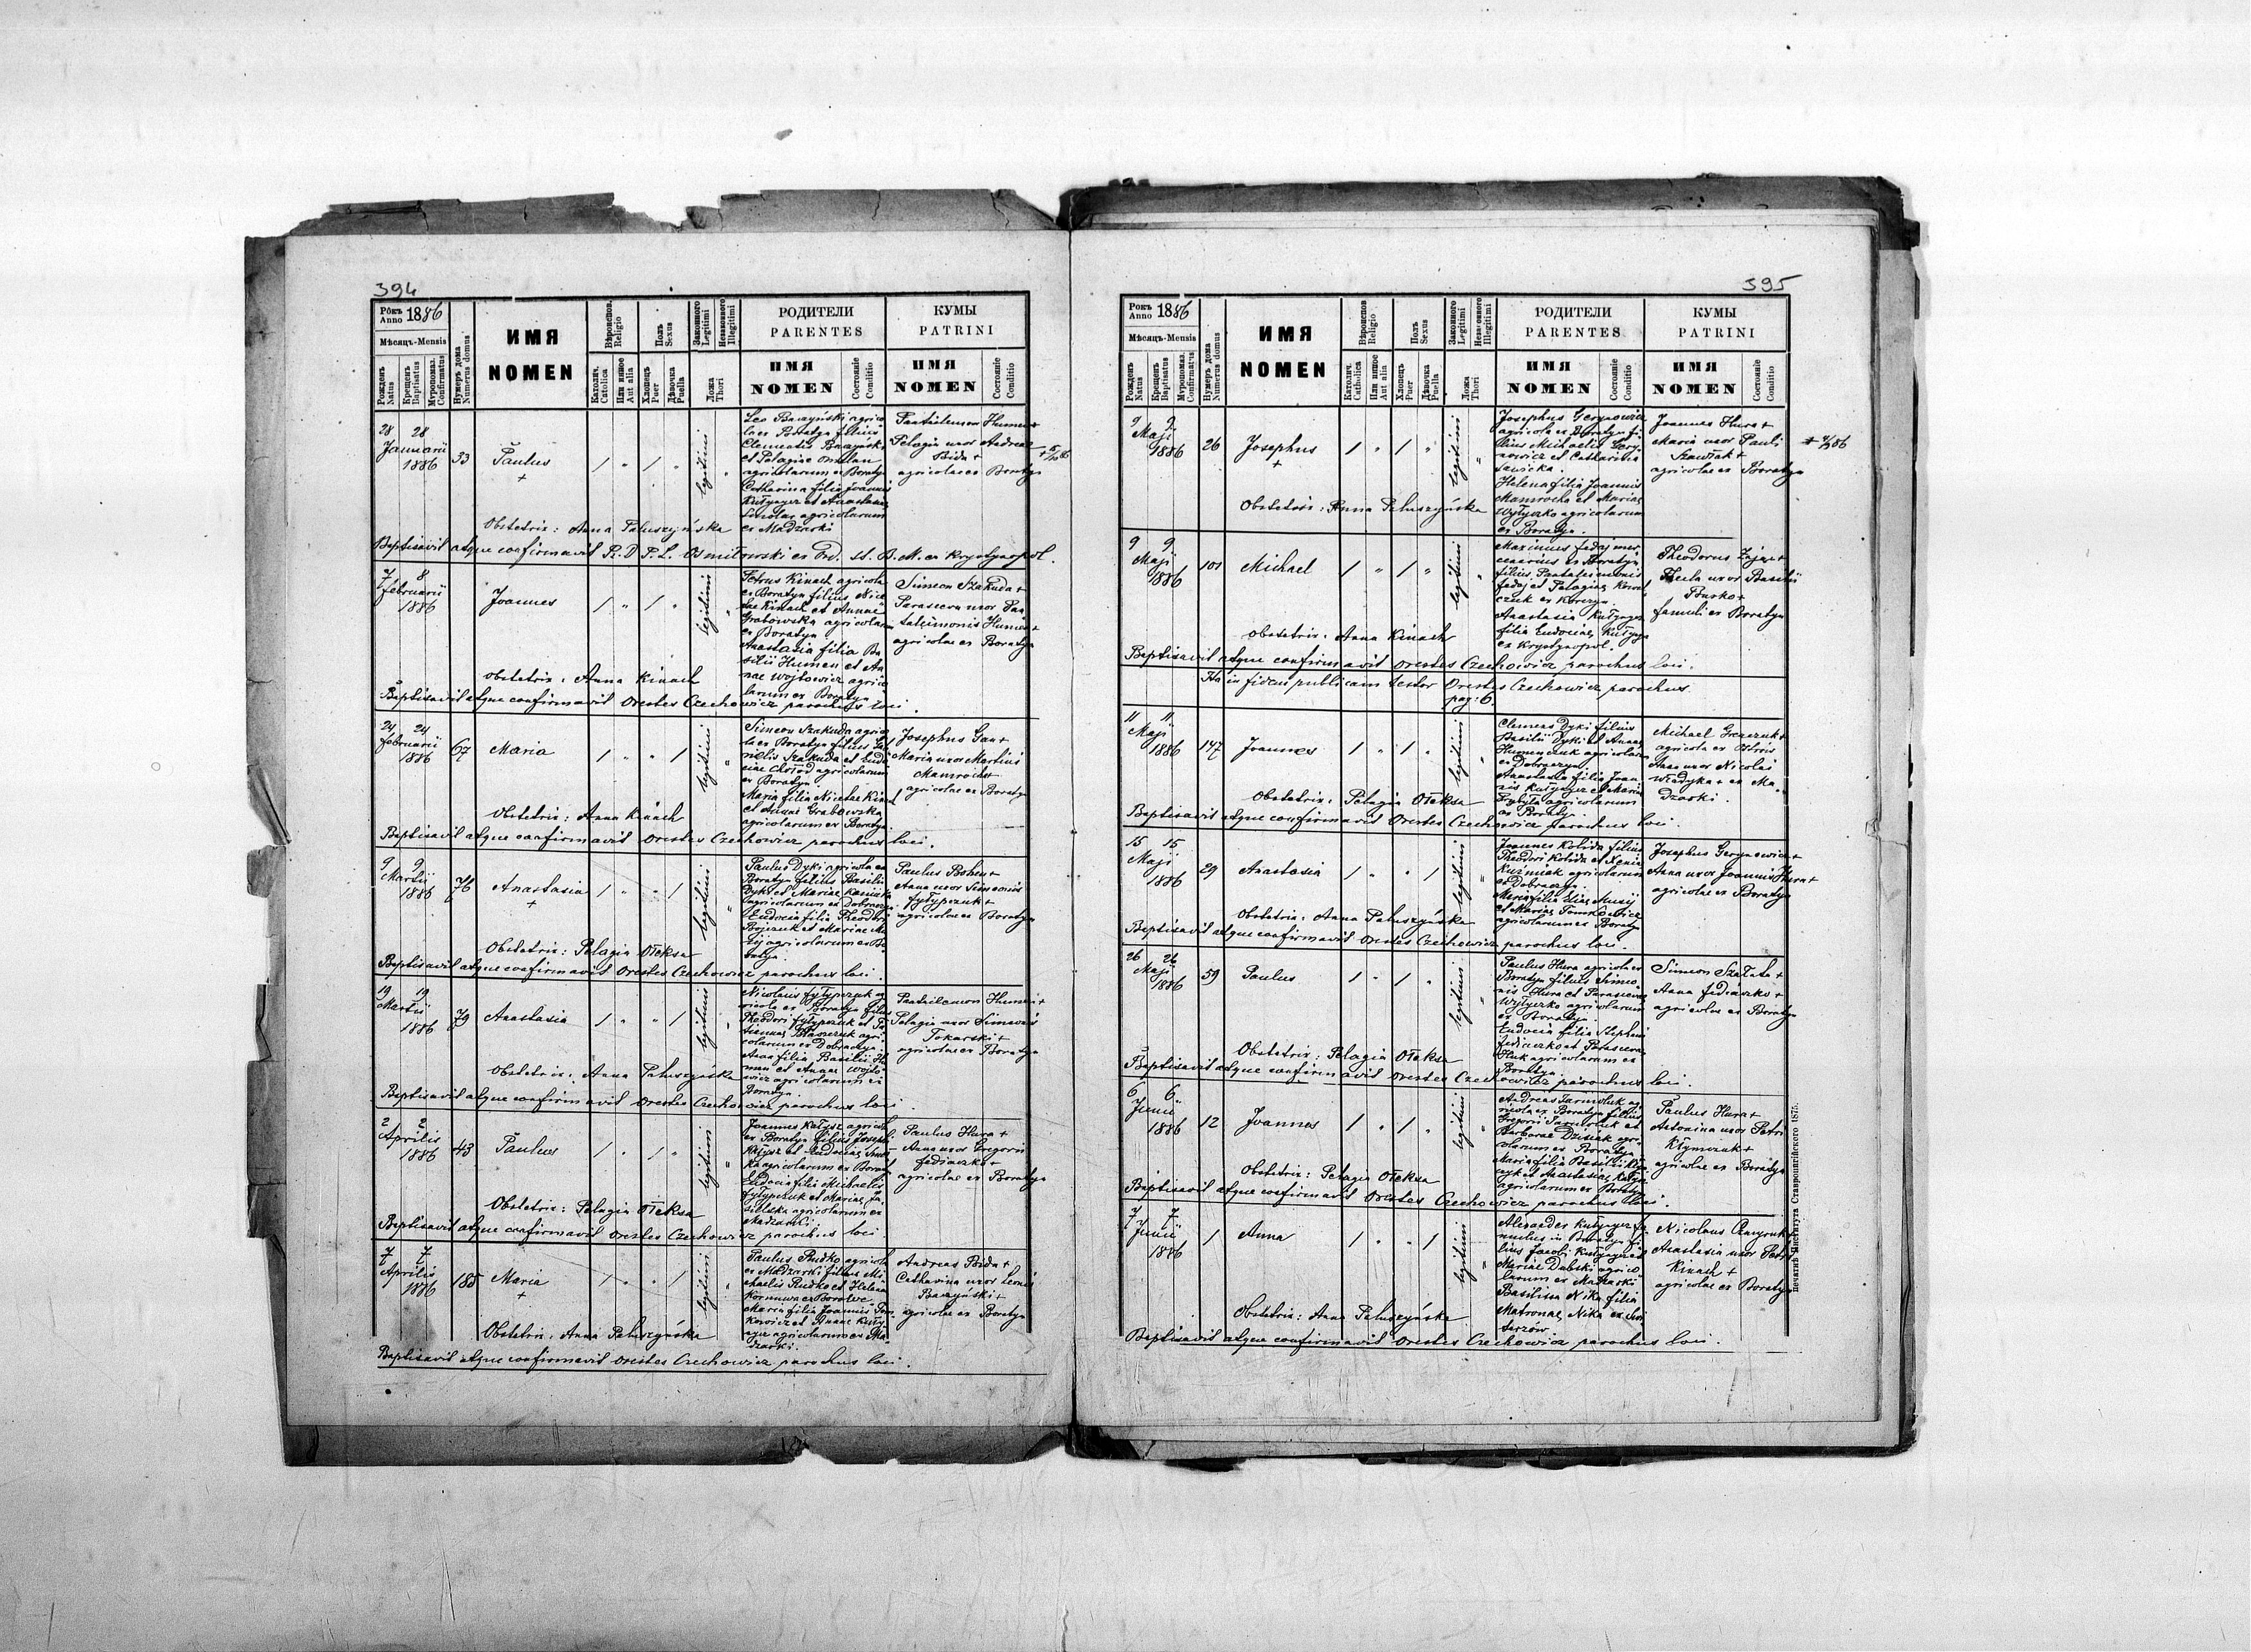 394
Рôкъ Anno 1886
Мѣсяцъ-Mensis
Рожденъ Natus
Крещенъ Baptisatus
Мѵропомаз. Confirmatus
Нумеръ дома Numerus domus
ИМЯ
NOMEN
Вѣроиспов. Religio
Католич. Catolica
Или иное Aut alia
Полъ Sexus
Хлопецъ Puer
Дѣвочка Puella
Законного Legitimi
Незаконного Illegitimi
Ложа Thori
РОДИТЕЛИ
PARENTES
ИМЯ
NOMEN
Состояніе Conditio
КУМЫ
PATRINI
ИМЯ
NOMEN
Состояніе Conditio
28 28
Januarii
1886
33
Paulus
+
legitimi
Leo Baczyński agrico
la ex Boratyn filius
Clementis Baczyński
et Pelagiae
agricolarum ex Boratyn
Catharina filia Joannis
Kułynycz et Anastasiae
agricolarum
ex Madzarki
Pantaleimon Humen +
Pelagia uxor Andreae
Bida +
agricolae ex Boratyn
Obstetrix: Anna Paluszyńska
Baptisavit atque confirmavit
7 8
februarii
1886
Joannes
legitimi
Petrus Kinach agricola
ex Boratyn filius Nice
tae Kinach et Annae
Grabowska agricolarum
ex Boratyn
Anastasia filia Ba
silii Humen et An
nae Wojtowicz agrico
larum ex Boratyn
Simeon Szakuda +
Parasceva uxor Pan
taleimonis Humen +
agricolae ex Boratyn
Obstetrix: Anna Kinach
Baptisavit atque confirmavit Orestes Czechowicz parochus loci.
24 24
februarii
1886
67
Maria
legitimi
Simeon Szakuda agrico
la ex Boratyn filius
Szakuda et Eudo
ciae agricolarum
ex Boratyn
Maria filia Nicetae Kinach
et Annae Grabowska
agricolarum ex Boratyn
Josephus Gan +
Maria uxor Martini
Mamrocha +
agricolae ex Boratyn
Obstetrix: Anna Kinach
Baptisavit atque confirmavit Orestes Czechowicz parochus loci.
9 9
Martii
1886
76
Anastasia
+
legitimi
Paulus Dyki agricola ex
Boratyn filius Basilii
Dyki et Mariae
agricolarum ex Dobraczyn
Eudocia filia Theodori
Bojczuk et Mariae
agricolarum ex Bo
ratyn
Paulus Bohen +
Anna uxor Simeonis
Fyłypczuk +
agricolae ex Boratyn
Obstetrix: Pelagia Ołeksa
Baptisavit atque confirmavit Orestes Czechowicz parochus loci.
19 19
Martii
1886
79
Anastasia
legitimi
Nicolaus Fyłypczuk a
gricola ex Boratyn filius
Theodori Fyłypczuk et
agri
colarum ex Dobraczyn
Anna filia Basilii Hu
men et Annae Wojto
wicz agricolarum ex
Boratyn
Pantaleimon Humen +
Pelagia uxor Simeonis
Tokarski +
agricolae ex Boratyn
Obstetrix: Anna Paluszyńska
Baptisavit atque confirmavit Orestes Czechowicz parochus loci.
2 2
Aprilis
1886
43
Paulus
legitimi
Joannes Kałysz agricola
ex Boratyn filius Josephi
Kałysz et Eudociae
agricolarum ex Boratyn
Eudocia filia Michaelis
Fyłypczuk et Mariae
agricolarum ex
Madzarki
Paulus Hura +
Anna uxor Gregorii
Fediaczko +
agricolae ex Boratyn
Obstetrix: Pelagia Ołeksa
Baptisavit atque confirmavit Orestes Czechowicz parochus loci.
7 7
Aprilis
1886
185
Maria
+
legitimi
Paulus Rudko agricola
ex Madzarki filius Mi
chaelis Rudko et Helenae
Maria filia Joannis Tom
kowicz et Annae Kuły
nycz agricolarum ex Ma
dzarki.
Andreas Bida +
Catharina uxor Leonis
Baczyński +
agricolae ex Boratyn
Obstetrix: Anna Paluszyńska
Baptisavit atque confirmavit Orestes Czechowicz parochus loci.
395
Рôкъ Anno 1886
Мѣсяцъ-Mensis
Рожденъ Natus
Крещенъ Baptisatus
Мѵропомаз. Confirmatus
Нумеръ дома Numerus domus
ИМЯ
NOMEN
Вѣроиспов Religio
Католич. Catholica
Или иное Aut alia
Полъ Sexus
Хлопецъ Puer
Дѣвочка Puella
Законного Legitimi
Незаконного Illegitimi
Ложа Thori
РОДИТЕЛИ
PARENTES
ИМЯ
NOMEN
Состояніе Conditio
КУМЫ
PATRINI
ИМЯ
NOMEN
Состояніе Conditio
9 9
Maji
1886
26
Josephus
+
legitimi
Josephus Gerynowicz
agricola ex Boratyn fi
lius Michaelis Gery
nowicz et Catharina
Sawicka.
Helena filia Joannis
Mamrocha et Mariae
Wytyczko agricolarum
ex Boratyn.
Joannes Hura +
Maria uxor Pauli
Szawlak +
agricolae ex Boratyn
Obstetrix: Anna Paluszyńska
9 9
Maji
1886
101
Michael
legitimi
Maximus Fedaj mer
cenarius ex Boratyn
filius Pantaleimonis
Fedaj et Pelagiae
Anastasia Kułynycz
filia Eudociae Kułynycz
ex Krystynopol.
Theodorus Zając +
Thecla uxor Basilii
Bursko +
famuli ex Boratyn
Obstetrix: Anna Kinach
Baptisavit atque confirmavit Orestes Czechowicz parochus loci.
Ita in fidem publicam testor Orestes Czechowicz parochus.
pag: 6.
11 11
Maji
1886
147
Joannes
legitimi
Clemens Dyki filius
Basilii Dyki et Annae
Humenczuk agricolarum
ex Dobraczyn.
Anastasia filia Joan
nis Kułynycz et Mariae
agricolarum
ex Boratyn.
Michael Greczuk +
agricola ex
Anna uxor Nicolai
Władyka + ex Ma
dzarki.
Obstetrix: Pelagia Ołeksa
Baptisavit atque confirmavit Orestes Czechowicz parochus loci.
15 15
Maji
1886
29
Anastasia
legitimi
Joannes Kobida filius
Theodori Kobida et Xenia
Kuźniak agricolarum
ex Dobraczyn.
Maria filia Eliae
et Mariae Tomkowicz
agricolarum ex Boratyn
Josephus Gerynowicz +
Anna uxor Joannis Hura +
agricolae ex Boratyn
Obstetrix: Anna Paluszyńska
Baptisavit atque confirmavit Orestes Czechowicz parochus loci.
26 26
Maji
1886
59
Paulus
legitimi
Paulus Hura agricola ex
Boratyn filius Simeo
nis Hura et Parascevae
Wytyczko agricolarum
ex Boratyn.
Eudocia filia Stephani
Fediaczko et Parascevae
agricolarum ex
Boratyn.
Simon Szałata +
Anna Fediaczko +
agricolae ex Boratyn
Obstetrix: Pelagia Ołeksa
Baptisavit atque confirmavit Orestes Czechowicz parochus loci.
6 6
Junii
1886
12
Joannes
legitimi
Andreas Jarmoluk ag
ricola ex Boratyn filius
Gregorii Jarmoluk et
Barbarae agri
colarum ex Boratyn
Maria filia Basilii
et Anastasiae
agricolarum ex Boratyn
Paulus Hura +
Antonina uxor Petri
Kłymczuk +
agricolae ex Boratyn
Obstetrix: Pelagia Ołeksa
Baptisavit atque confirmavit Orestes Czechowicz parochus loci.
7 7
Junii
1886
1
Anna
legitimi
Alexander Kułynycz fa
mulus in Boratyn fi
lius Jacobi Kułynycz et
Mariae Dubski agrico
larum ex Madzarki
Basilissa Nika filia
Matronae Nika
Nicolaus
Anastasia uxor Petri
Kinach +
agricolae ex Boratyn
Obstetrix: Anna Paluszyńska
Baptisavit atque confirmavit Orestes Czechowicz parochus loci.
печатнѣ Института Ставропигійского 1875.